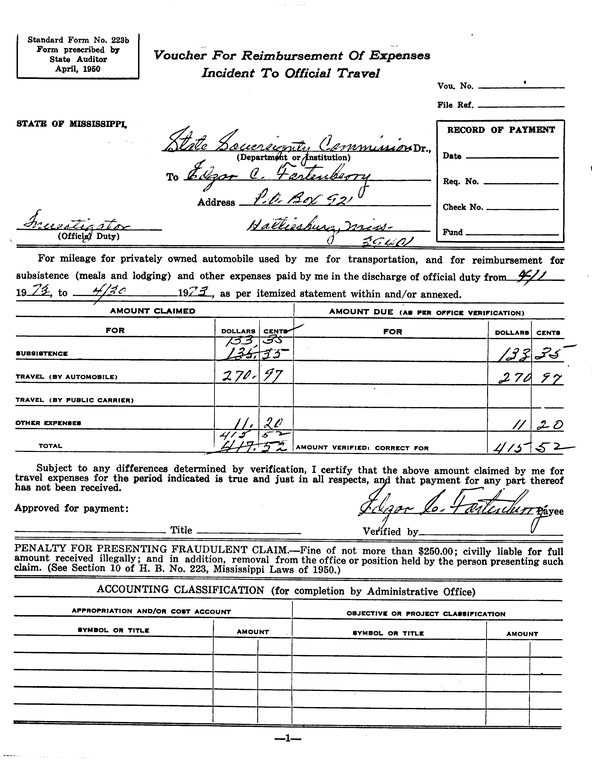 Standard Form No. 223b
Form prescribed by
State Auditor
April, 1950
Voucher For Reimbursement Of Expenses
Incident To Official Travel
Vou. No.
File Ref.
STATE OF MISSISSIPPI,
RECORD OF PAYMENT
Date
Req. No.
Check No.
Fund
State Sovereignty Commission Dr.,
(Department or Institution)
To Edgar C. Fortenberry
Address P.O. Box 921
Investigator Hattiesburg, Miss.
(Official Duty) 39401
For mileage for privately owned automobile used by me for transportation, and for reimbursement for
subsistence (meals and lodging) and other expenses paid by me in the discharge of official duty from 4/1
1973, to 4/30 1973, as per itemized statement within and/or annexed.
AMOUNT CLAIMED AMOUNT DUE (AS PER OFFICE VERIFICATION)
FOR DOLLARS CENTS FOR DOLLARS CENTS
133 35
SUBSISTENCE 135.35 133 35
TRAVEL (BY AUTOMOBILE) 270.97 270 97
TRAVEL (BY PUBLIC CARRIER)
OTHER EXPENSES 11.20 11 20
415 52
TOTAL 417.52 AMOUNT VERIFIED: CORRECT FOR 415 52
Subject to any differences determined by verification, I certify that the above amount claimed by me for
travel expenses for the period indicated is true and just in all respects, and that payment for any part thereof
has not been received.
Approved for payment: Edgar C. Fortenberry Payee
Title Verified by
PENALTY FOR PRESENTING FRAUDULENT CLAIM.—Fine of not more than $250.00; civilly liable for full
amount received illegally; and in addition, removal from the office or position held by the person presenting such
claim. (See Section 10 of H. B. No. 223, Mississippi Laws of 1950.)
ACCOUNTING CLASSIFICATION (for completion by Administrative Office)
APPROPRIATION AND/OR COST ACCOUNT OBJECTIVE OR PROJECT CLASSIFICATION
SYMBOL OR TITLE AMOUNT SYMBOL OR TITLE AMOUNT
—1—